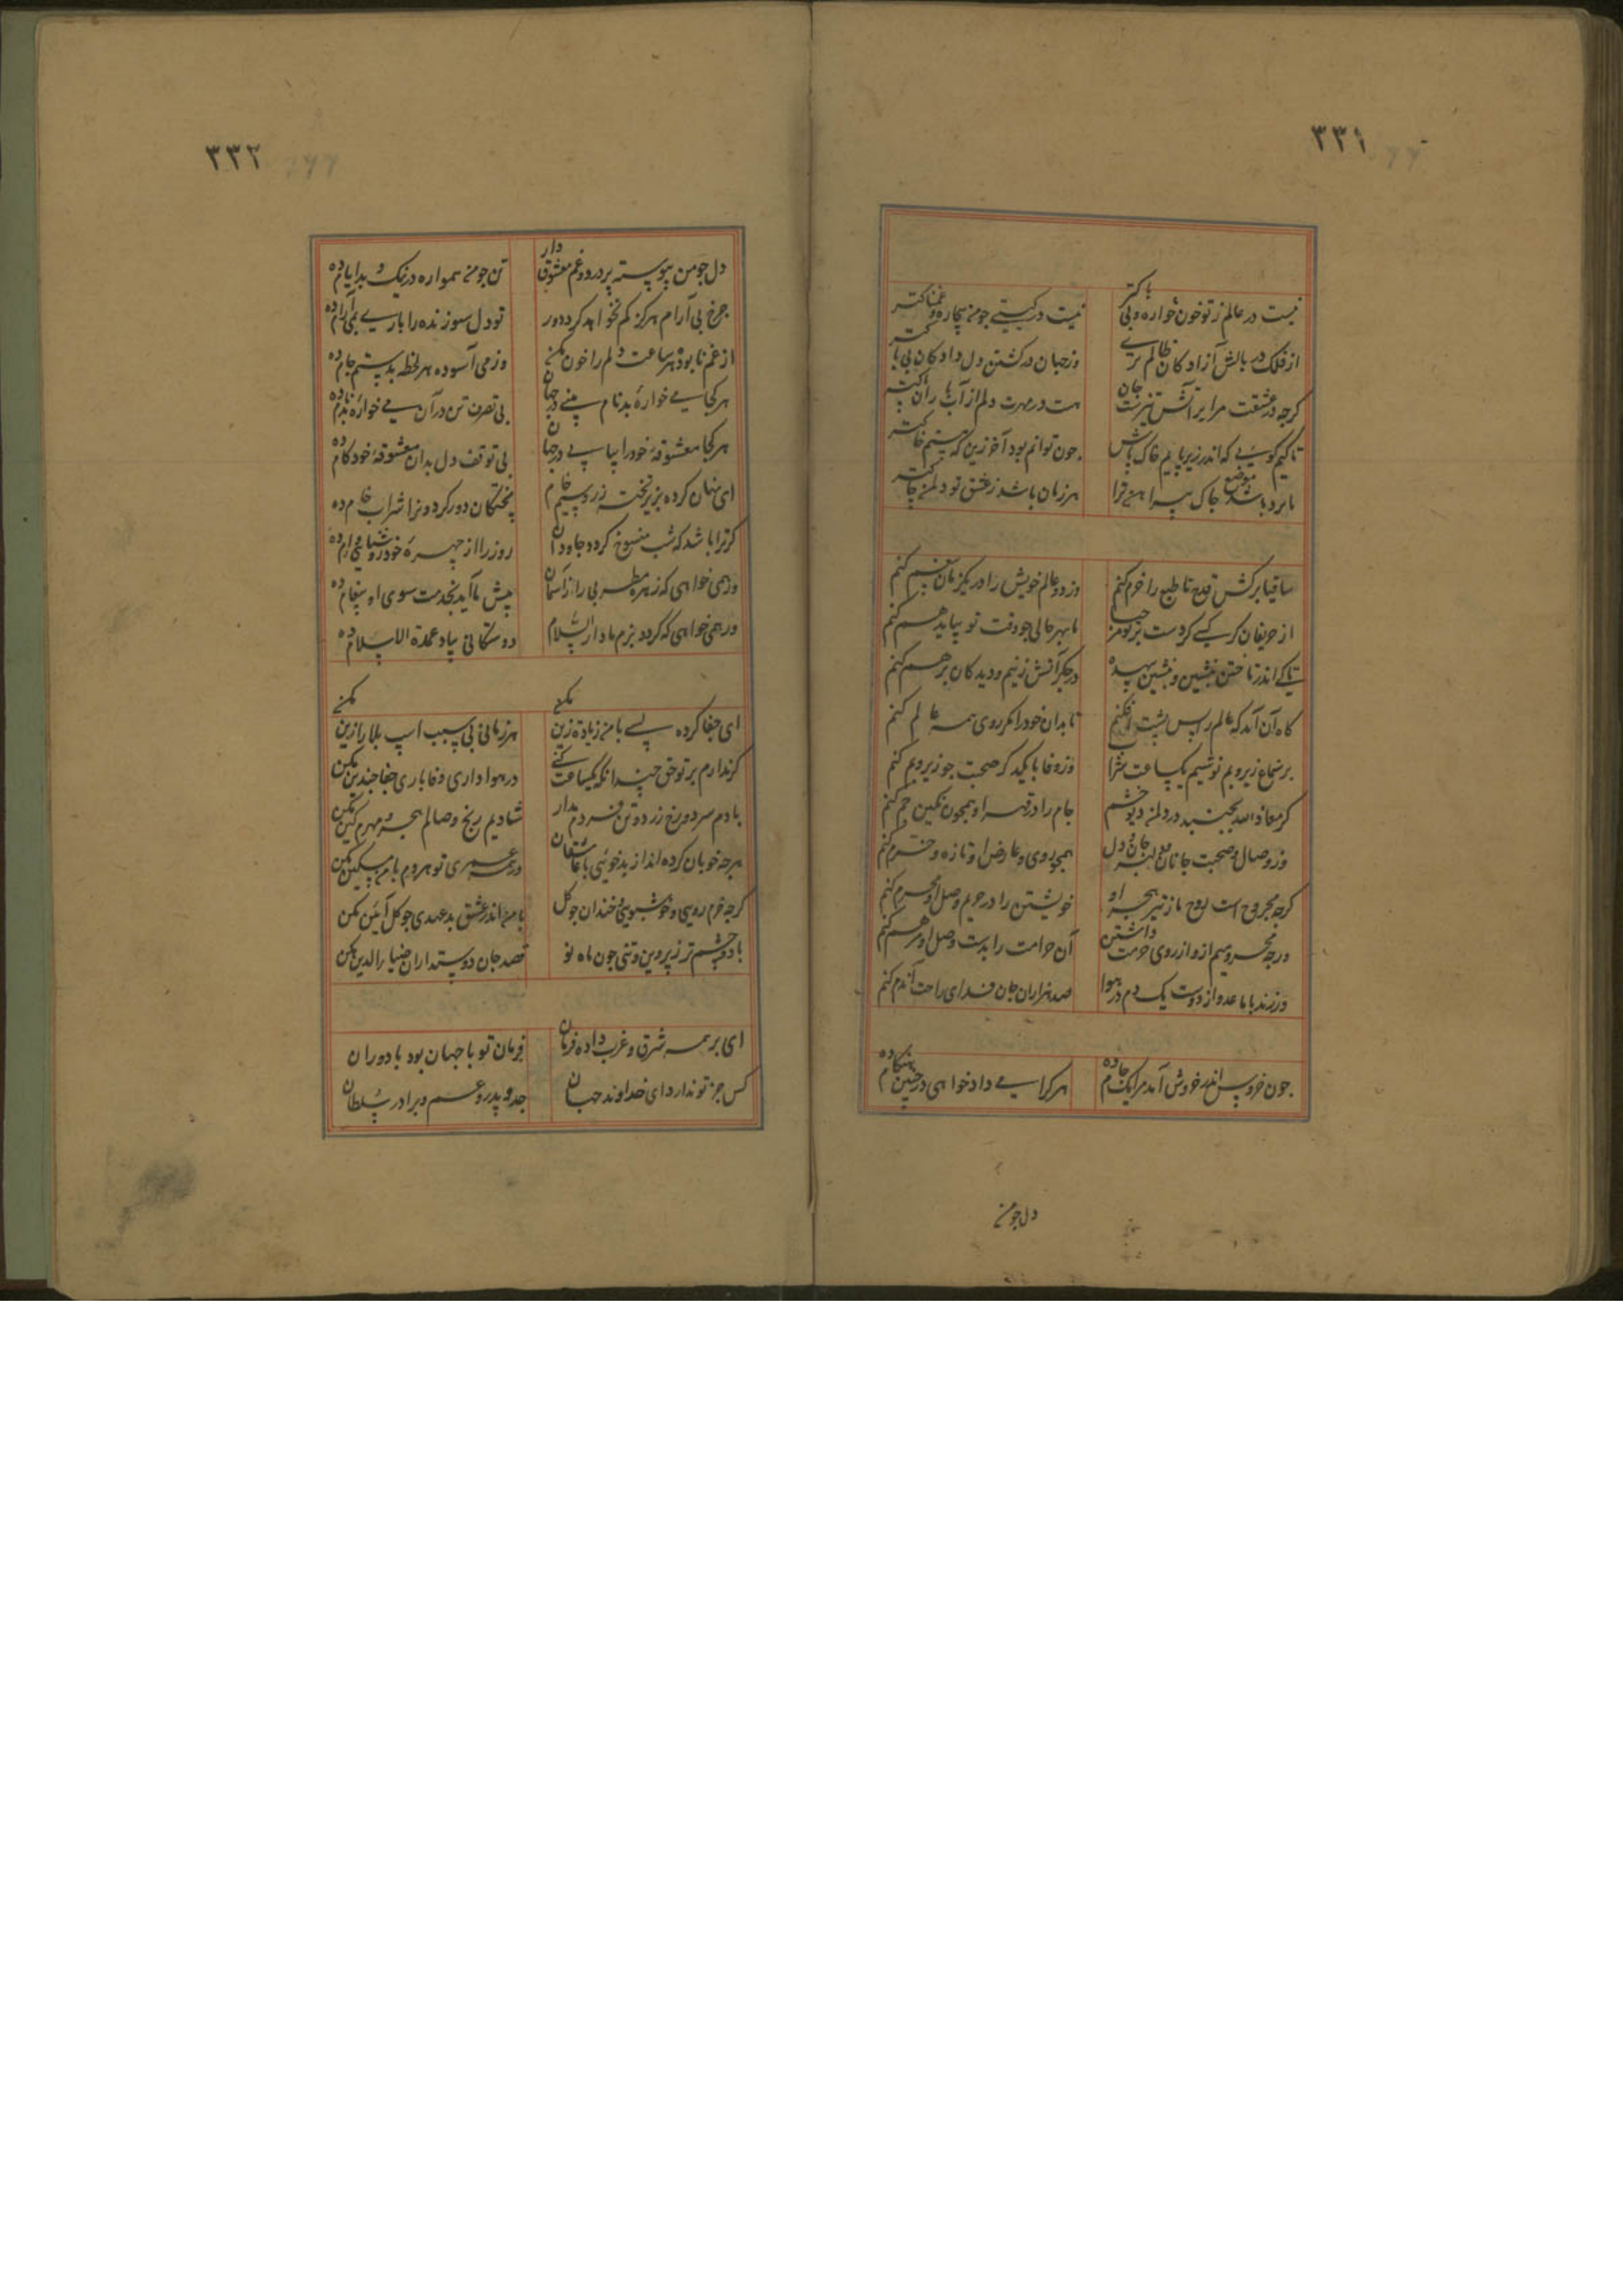 ٣٣١
نیست در عالم ز تو خون خواره و بی باکتر
نیست در گیتی جو من بیچاره و غمناکتر
از فلک در بالش آزادکان ظالم تری
وز جهان در کشتن دل دادکان بی باکتر
کرچه در عشقت مرا بر آتش تیزست جان
هست در مهرت دلم از آب باران پاکتر
تا کیم کویی که اندر زیر پایم خاک باش
جون توانم بود آخر زین که هستم خاکتر
جاک پیراهن ترا
هر زمان باشد ز عشق تو دلم جاکتر
ساقیا برکش قدح تا طبع را خرم کنیم
وز دو عالم خویش را در یکزمان بیغم کنیم
از حریفان کر کسی کردست بر تو
ما بهر حالی جو وقت تو بیاید هم کنیم
تا کی اندر تاختن بنشین و بنشین بیهده
در جکر آتش زنیم و دیدکان برهم کنیم
کاه آن آمد که عالم را پس پشت افکنیم
تا بدان خود را مکر روی همه عالم کنیم
بر سماع زیر و بم نوشیم یکساعت شراب
وز وفا با یکدکر صحبت جو زیر و بم کنیم
کر معاذ الله بجنبد در دلم دیو خشم
جام را در قهر او همجون نکین جم کنیم
وز وصال و صحبت جانان مع جان و دل
همجو روی و عارض او تازه و خرم کنیم
کرچه مجروح است روح ما ز تیر هجر او
خویشتن را در حریم وصل او محرم کنیم
درچه محرومیم ازو از روی حرمت داشتن
آن حرامت را بدست وصل او مرهم کنیم
ور زند با ما عدو از دوست یک دم در هوا
صد هزاران جان فدای راحت آندم کنیم
جون خروس اندر خروش آمد مرا یک جام ده
هر کرا می داد خواهی در جنین هنکام ده
دل جو من
٣٣٢
دل جو من پیوسته پر درد و غم معشوق دار
تن جو من همواره در نیک و بد ایام ده
جرخ بی آرام هرکز کم نخواهد کرد دور
تو دل سوزنده را باری بمی آرام ده
از غم نابوده هر ساعت دلم را خون مکن
وز می آسوده هر لحظه بدستم جام ده
هر کجا می خوارهٔ بدنام بینی در جهان
بی تصرف تن در آن می خوارهٔ بدنام ده
هر کجا معشوقهٔ خود را بیابی در جهان
بی توقف دل بدان معشوقهٔ خودکام ده
ای نهان کرده بزیر تخته زر و سیم خام
پختکان دور کردون را شراب خام ده
کر ترا باشد که شب منسوخ کردد جاودان
روز را از جهرهٔ خود روشنایی وام ده
ور همی خواهی که زهره مطربی را از آسمان
پیش ما آید بخدمت سوی او پیغام ده
ور همی خواهی که کردد بزم ما دار السلام
دوستکانی بیاد عمدة الاسلام ده
ای جفا کرده بسی با من زیادت زین مکن
هر زمانی بی سبب اسب بلا را زین مکن
کر ندارم بر تو حق جندانکه یکساعت کنی
در هوا داری وفا باری جفا جندین مکن
با دم سرد و رخ زرد و تن فردم مدار
شادیم رنج و وصالم هجر و مهرم کین مکن
هرچه خوبان کرده اند از بدخوئیی با عاشقان
در همه عمری تو هر دم با من مسکین مکن
کرچه خرم رویی و خوشبویی و خندان جو کل
با من اندر عشق بدعهدی جو کل آیین مکن
با دو جشم تر ز پروین و تنی جون ماه نو
قصد جان دوستداران ضیاءالدین مکن
ای بر همه شرق و غرب داده فرمان
فرمان تو با جهان بود با دوران
کس جز تو ندارد ای خداوند جهان
جد و پدر و عم و برادر سلطان